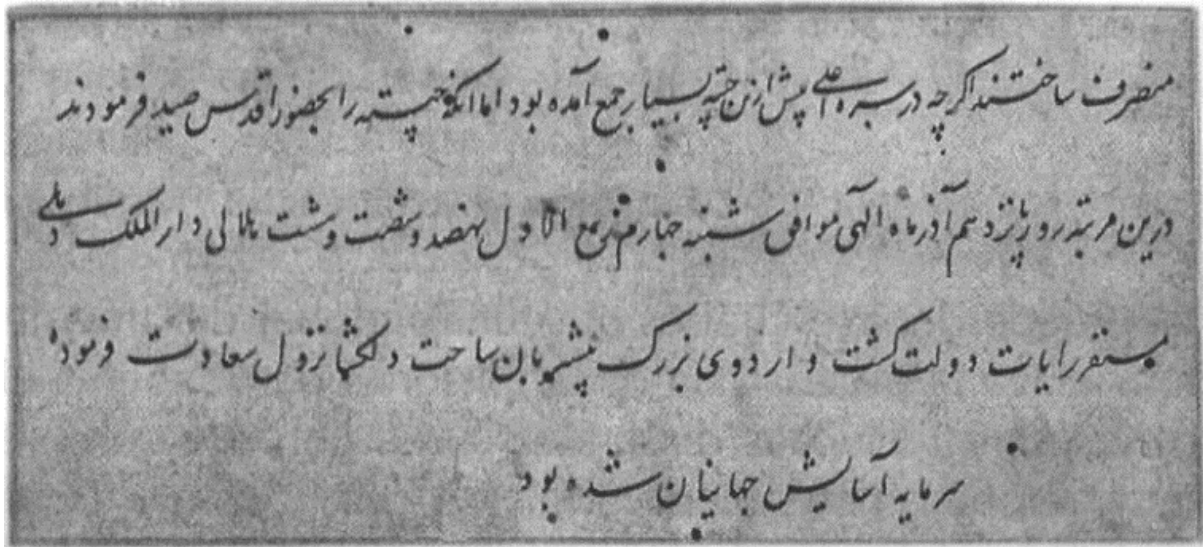 منصرف ساختند اگر چه در سرکار اعلی پیش ازین چیته بسیار جمع آمده بود اما آنکه چیته را بحضور اقدس صید فرمودند
درین مرتبه روز پانزدهم آذرماه الهی موافق شنبه چهارم ربیع الاول نهصد و شصت و هشت هلالی دار الملک دهلی
مستقر رایات دولت گشت و اردوی بزرگ پیشتر بان ساحت دلگشا نزول سعادت فرموده
سرمایه آسایش جهانیان شده بود